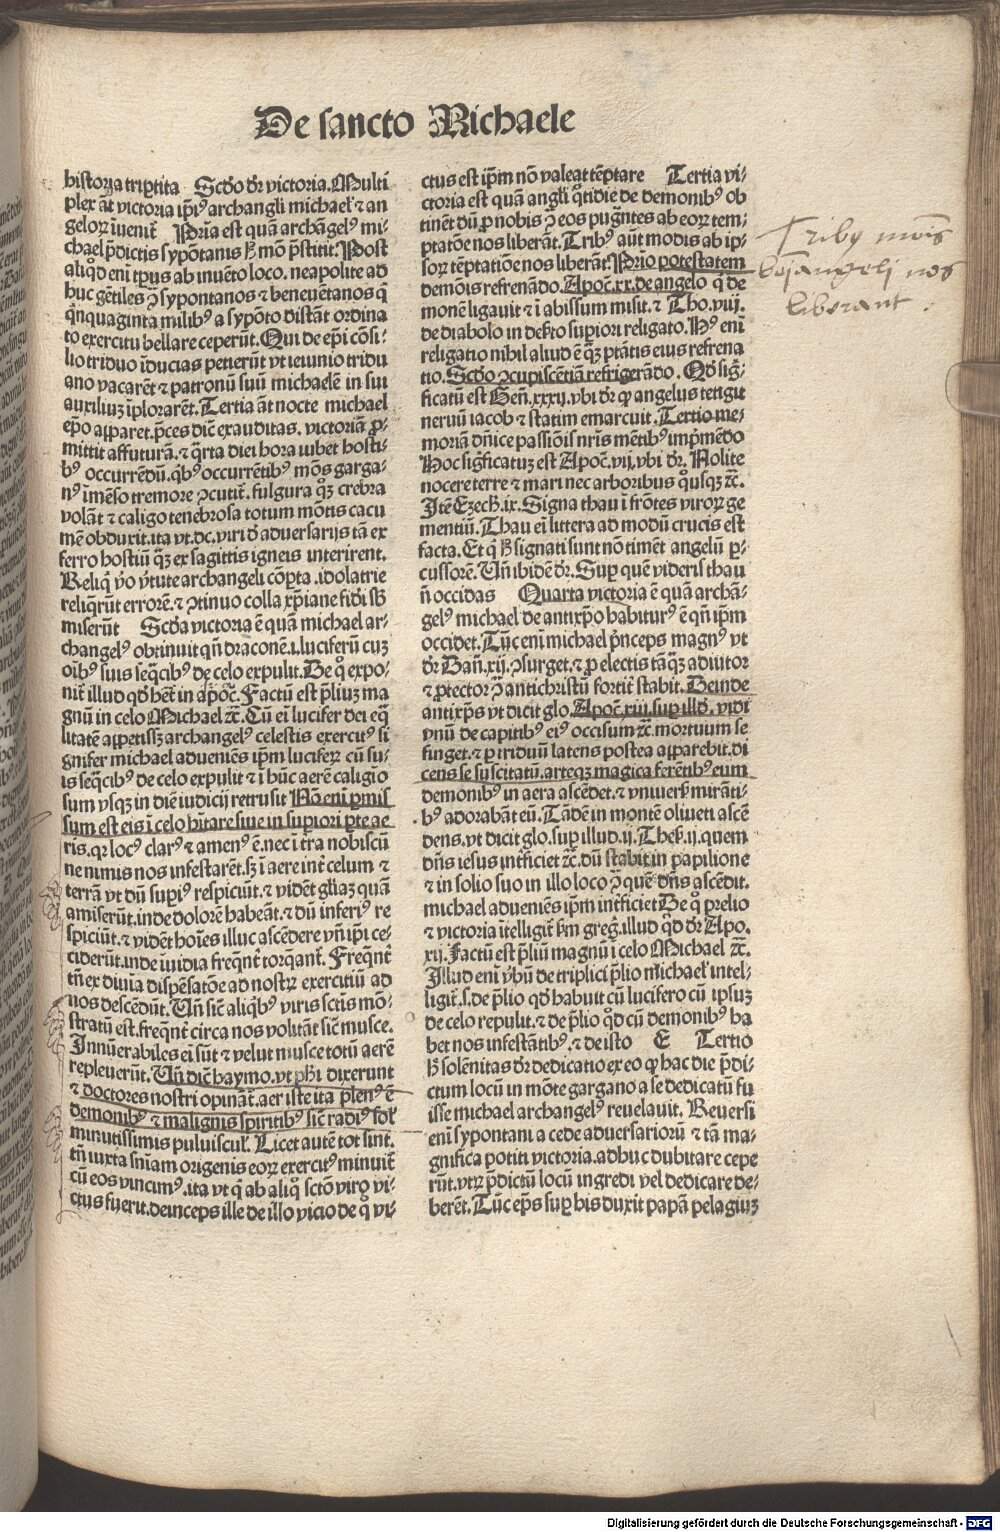 De sancto Michaele
historia tripartita Scđo dr̄ victoria. Multi
plex aūt victoria ip̄iꝰ archangeli michael̄ ⁊ an
geloꝝ īuenit̄ Pria est quā archāgelꝰ mi-
chael p̄dictis sypōtanis h̄ mō p̄stitit. Post
aliqđ eni tp̄us ab inuēto loco. neapolite ad
huc gētiles ↄ̄ sypontanos ⁊ beneuētanos q̄
q̄nquaginta milibꝰ a sypōto distāt ordina
to exercitu bellare ceperūt. Qui de ep̄i cōsi-
lio triduo īducias petierūt vt ieiunio tridu
ano vacarēt ⁊ patronū suū michaelē in sui
auxiliuꝫ īplorarēt. Tertia āt nocte michael
ep̄o apparet. p̄ces dic̄ exauditas. victoriā ꝓ-
mittit affuturā. ⁊ q̄rta diei hora iubet hosti-
bꝰ occurrēdū. q̄bꝰ occurrētibꝰ mōs garga-
nꝰ īmēso tremore ↄcutit̄. fulgura qꝫ crebra
volāt ⁊ caligo tenebrosa totum mōtis cacu
mē obduxit. ita vt .dc. viri đ aduersarijs tā ex
ferro hostiū qꝫ ex sagittis igneis interirent.
Reliq̄ ṽo ṽtute archangeli cōpta. idolatrie
reliq̄rūt errorē. ⁊ ↄtinuo colla xp̄iane fidi sb̄
miserūt Scđa victoria ē quā michael ar-
changelꝰ obtinuit qn̄ draconē .i. luciferū cuꝫ
oībꝰ suis seq̄cibꝰ de celo expulit. De qͦ expo-
nit̄ illud qđ het̄ in apoc̄. Factū est p̄liuꝫ ma
gnū in celo Michael ⁊c̄. Cū eni lucifer dei eq̄
litatē appetissꝫ archangelꝰ celestis exercitꝰ si
gnifer michael adueniēs ip̄m luciferꝝ cū su-
is seq̄cibꝰ de celo expulit ⁊ ī hūc aerē caligio
sum vsqꝫ in diē iudicij retrusit Nō eni p̱mis
sum est eis ī celo hītare siue in supiori p̱te ae
ris. qr locꝰ clarꝰ ⁊ amenꝰ ē. nec ī tr̄a nobiscū
ne nimis nos infestarēt. sꝫ ī aere int̄ celum ⁊
terrā vt dū supiꝰ respiciūt. ⁊ vidēt gl̄iaꝫ quā
amiserūt. inde dolorē habeāt. ⁊ dū inferiꝰ re
spiciūt. ⁊ vidēt hoīes illuc ascēdere vn̄ ip̄i ce-
ciderūt. inde īuidia freq̄nt̄ torqant̄. Freq̄nt̄
tn̄ ex diuīa dispēsatōe ad nostꝝ exercitiū ad
nos descēdūt. Vn̄ sic̄ aliqbꝰ viris sctīs mō-
stratū est. freq̄nt̄ circa nos volitāt sic̄ musce.
Innūerabiles ei sūt ⁊ velut musce totū aerē
repleuerūt. Vn̄ dic̄ haymo. vt ph̄i dixerunt
⁊ doctores nostri opinat̄. aer iste ita plenꝰ ē
demonibꝰ ⁊ malignis spiritibꝰ sic̄ radiꝰ sol̄
minutissimis puluiscul̄. Licet autē tot sint.
tn̄ iuxta sn̄iam origenis eoꝝ exercitꝰ minuit̄
cū eos vincimꝰ. ita vt q̄ ab aliqͦ sctō viro vi-
ctus fuerit. deinceps ille de illo vicio de qͦ vi-
ctus est ip̄m nō valeat tēptare Tertia vi-
ctoria est quā angli qͦtidie de demonibꝰ ob
tinēt dū ꝓ nobis ↄ̄ eos pugn̄tes ab eoꝝ tem-
ptatōe nos liberāt. Tribꝰ aūt modis ab ip-
soꝝ tēptatiōe nos liberāt. Prio potestatem
demōis refrenādo. Apoc̄.xx. de angelo q̄ de
monē ligauit ⁊ ī abissum misit. ⁊ Tho. viij.
de diabolo in def̄to supiori religato. Hꝰ enī
religatio nihil aliud ē qꝫ p̄tātis eius refrena
tio. Scđo ↄcupiscētiā refrigerādo. Qđ siḡ-
ficatū est Gen̄.xxxij. vbi dr̄ ꝙ angelus tetigit
neruū iacob ⁊ statim emarcuit. Tertio me-
moriā dn̄ice passiōis nr̄is mētibꝰ imp̄mēdo
Hoc siḡficatuꝫ est Apoc̄.vij. vbi dr̄. Nolite
nocere terre ⁊ mari nec arboribus qͦusqꝫ ⁊c̄.
Itē Ezech.ix. Signa thau ī frōtes viroꝝ ge
mentiū. Thau ei littera ad modū crucis est
facta. Et q̄ h̄ signati sunt nō timēt angelū p̱-
cussorē. Vn̄ ibidē dr̄. Sup̱ quē videris thau
n̄ occidas Quarta victoria ē quā archā-
gelꝰ michael de antixp̄o habiturꝰ ē qn̄ ip̄m
occidet. Tūc enī michael p̄nceps magnꝰ vt
dr̄ Dan̄.xij. ↄsurget. ⁊ ꝓ electis tāqꝫ adiutor
⁊ ꝓtector ↄ̄ antichristū fortit̄ stabit. Deinde
antixp̄s vt dicit glo. Apoc̄.xiij. sup̱ illđ. vidi
vnū de capitibꝰ eiꝰ occisum ⁊c̄. mortuum se
finget. ⁊ p̱ triduū latens postea apparebit. di
cens se suscitatū. arteqꝫ magica ferētibꝰ eum
demonibꝰ in aera ascēdet. ⁊ vniuersꝭ mirāti-
bꝰ adorabāt eū. Tādē in montē oliueti ascē
dens. vt dicit glo. sup̱ illud .ij. Thes̄.ij. quem
dn̄s iesus int̄ficiet ⁊c̄. dū stabit in papilione
⁊ in solio suo in illo loco ↄ̄ quē dn̄s ascēdit.
michael adueniēs ip̄m int̄ficiet De qͦ prelio
⁊ victoria ītelligit̄ ẜm greḡ. illud qđ dr̄ Apo.
xij. Factū est p̄liū magnū ī celo Michael ⁊c̄.
Illud enī ṽbū de triplici p̄lio michael̄ intel-
ligit̄ .s. de p̄lio qđ habuit cū lucifero cū ipsuꝫ
de celo repulit. ⁊ de p̄lio qđ cū demonibꝰ ha
bet nos infestātibꝰ. ⁊ de isto E Tertio
h̄ solēnitas dr̄ dedicatio ex eo ꝙ hac die p̄di-
ctum locū in mōte gargano a se dedicatū fu
isse michael archangelꝰ reuelauit. Reuersi
enī sypontani a cede aduersarioꝝ ⁊ tā ma-
gnifica potiti victoria. adhuc dubitare cepe
rūt. vtꝝ p̄dictū locū ingredi vel dedicare de-
berēt. Tūc ep̄s sup̱ his duxit papā pelagiuꝫ
Tribꝰ mo͞is
angelj nos
liberant.
Digitalisierung gefördert durch die Deutsche Forschungsgemeinschaft - DFG